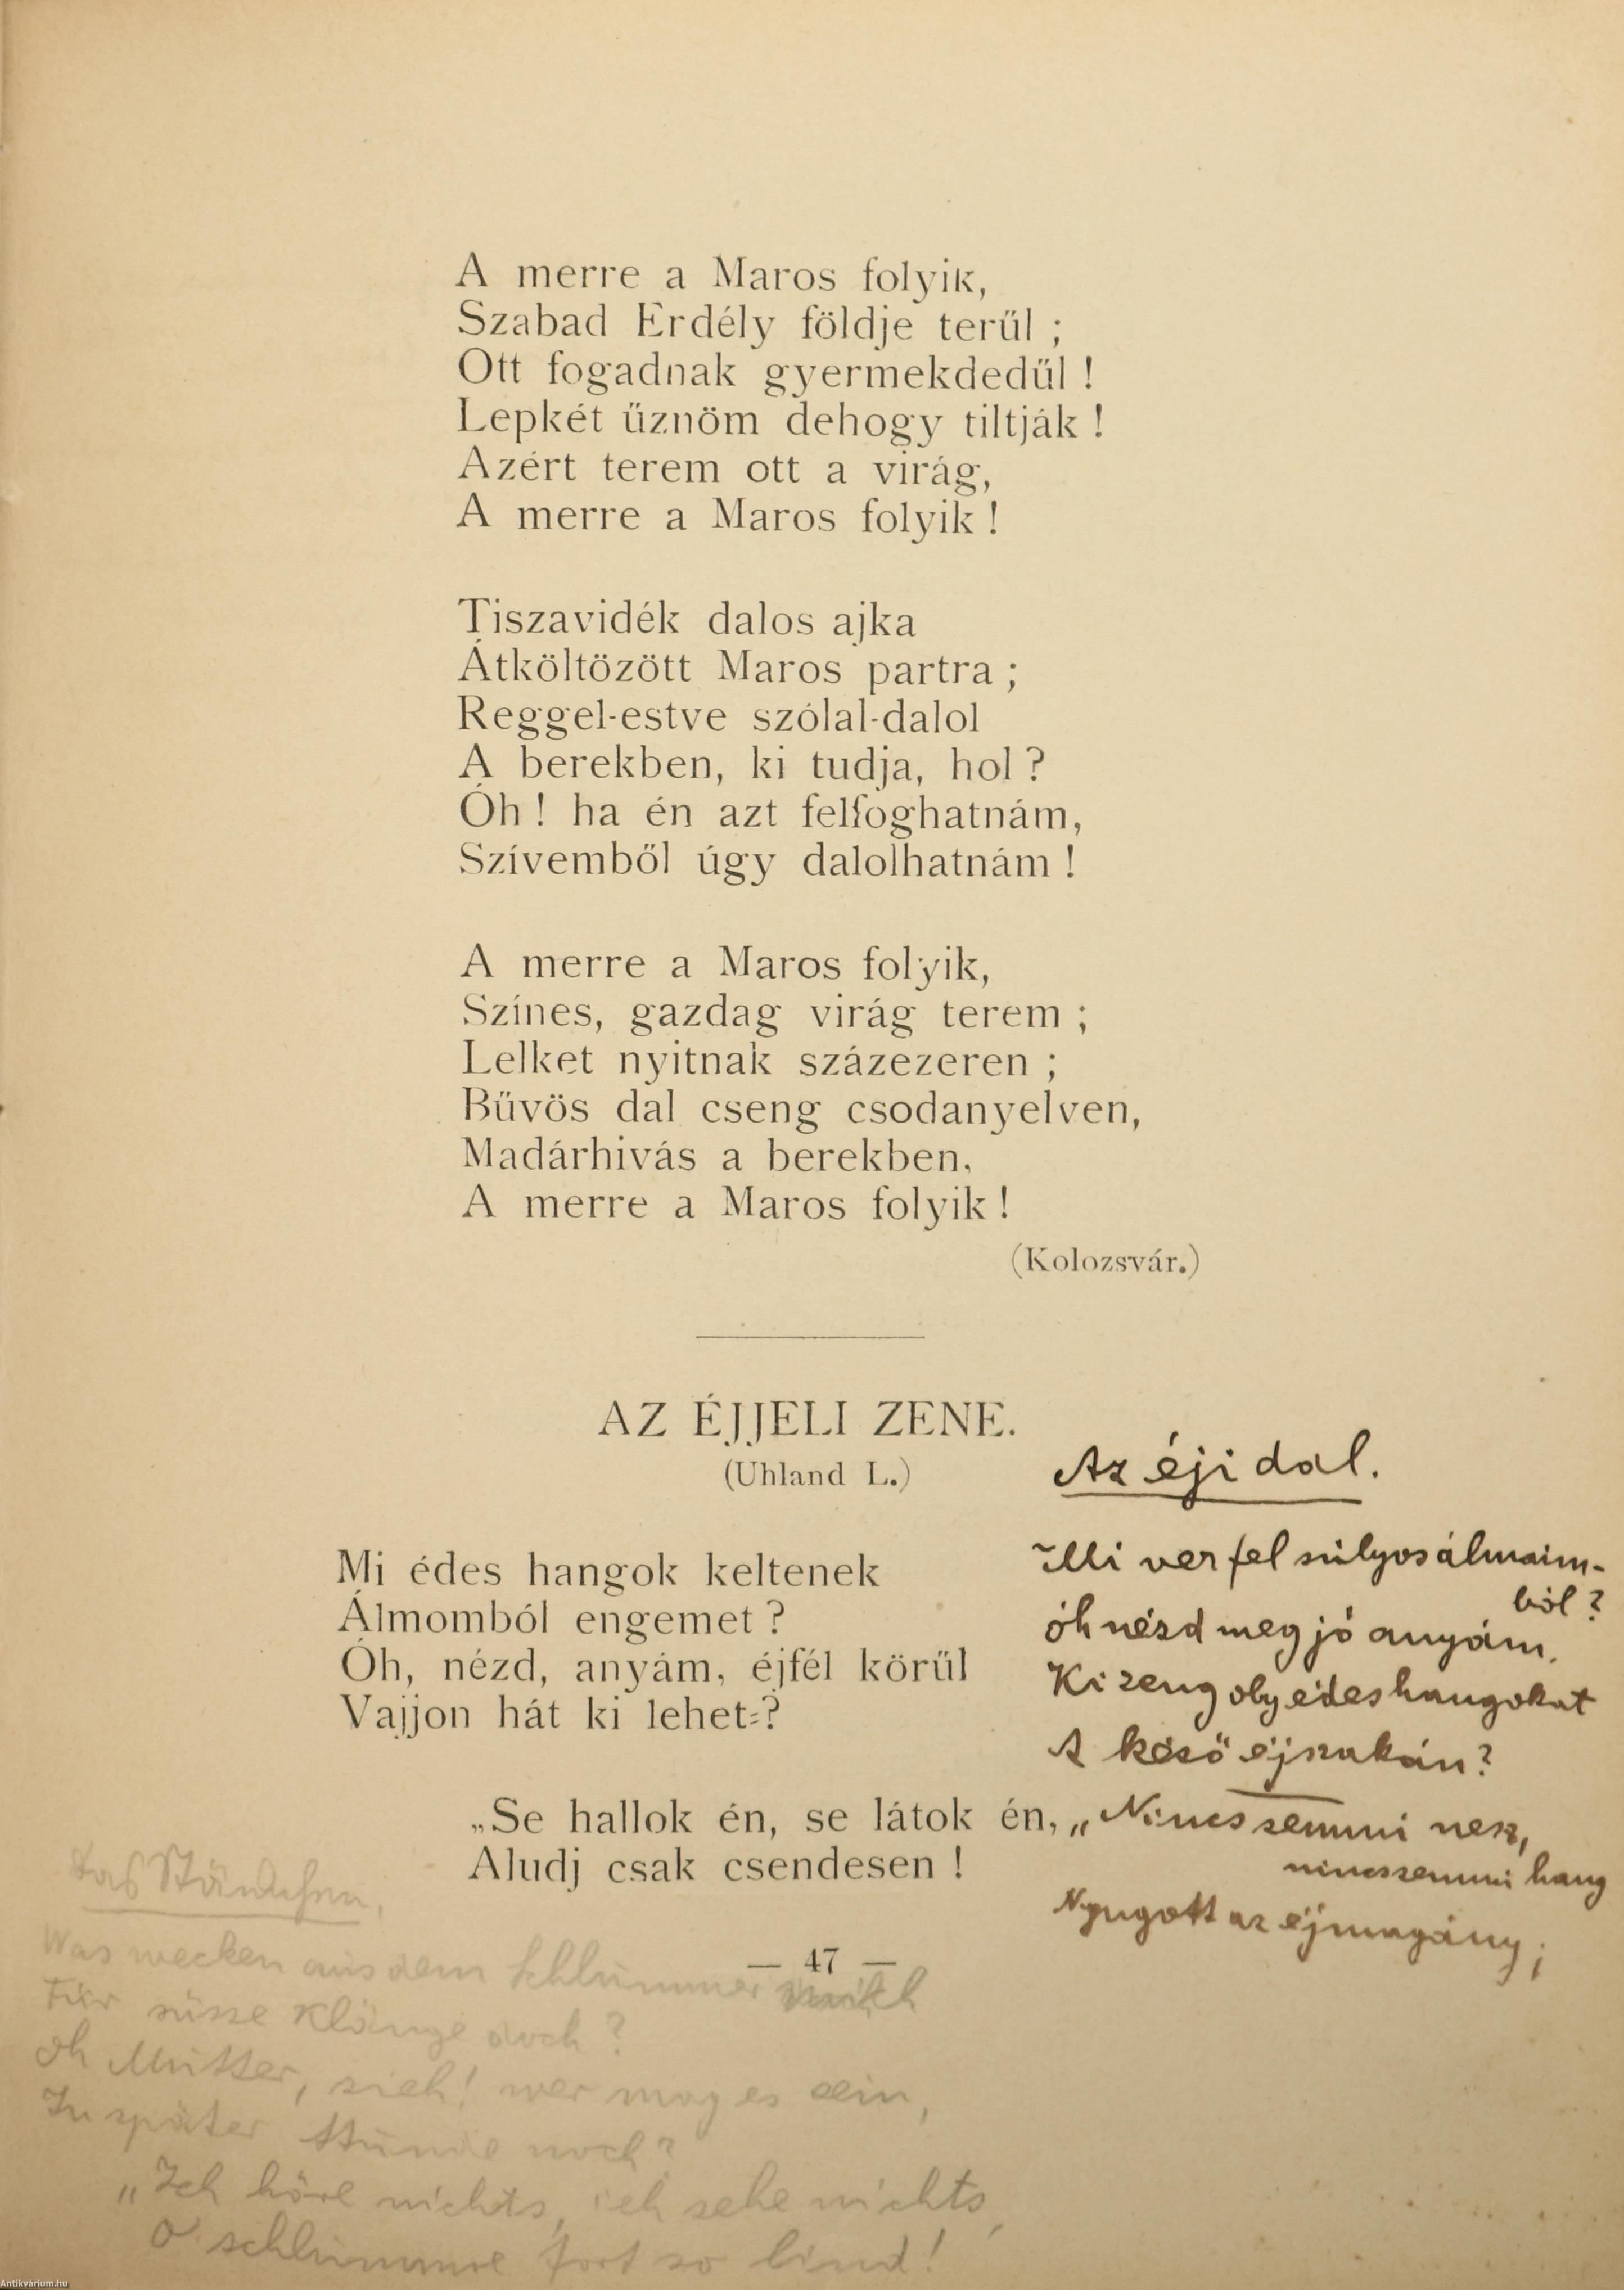 A merre a Maros folyik,
Szabad Erdély földje terűl ;
Ott fogadnak gyermekdedűl !
Lepkét űznöm dehogy tiltják !
Azért terem ott a virág,
A merre a Maros folyik !
Tiszavidék dalos ajka
Átköltözött Maros partra ;
Reggel-estve szólal-dalol
A berekben, ki tudja, hol ?
Óh ! ha én azt felfoghatnám,
Szívemből úgy dalolhatnám !
A merre a Maros folyik,
Színes, gazdag virág terem ;
Lelket nyitnak százezeren ;
Bűvös dal cseng csodanyelven,
Madárhivás a berekben,
A merre a Maros folyik !
(Kolozsvár.)
AZ ÉJJELI ZENE.
(Uhland L.)
Mi édes hangok keltenek
Álmomból engemet ?
Óh, nézd, anyám, éjfél körűl
Vajjon hát ki lehet-?
„Se hallok én, se látok én,
Aludj csak csendesen !
— 47 —
Az éji dal.
Mi ver fel súlyos álmaim-
ból ?
óh nézd meg jó anyám,
Ki zeng oly édes hangokat
A késő éjszakán?
„Nincs semmi nesz,
nincs semmi hang
Nyugott az éjmagány;
Das Ständchen.
Was wecken aus dem Schlummer mich
Für süsse Klänge doch?
Oh Mutter, sieh! wer mag es sein,
In später Stunde noch?
„Ich höre nichts, ich sehe nichts,
O schlummre fort so lind!
Antikvárium.hu